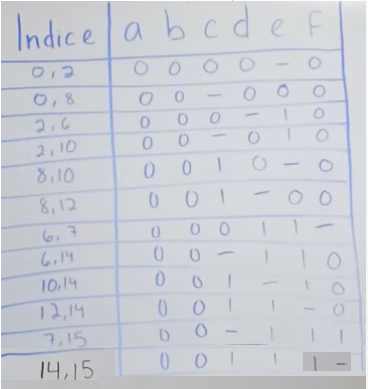 Indice a b c d e f
0,2 0 0 0 0 - 0
0,8 0 0 - 0 0 0
2,6 0 0 0 - 1 0
2,10 0 0 - 0 1 0
8,10 0 0 1 0 - 0
8,12 0 0 1 - 0 0
6,7 0 0 0 1 1 -
6,14 0 0 - 1 1 0
10,14 0 0 1 - 1 0
12,14 0 0 1 1 - 0
7,15 0 0 - 1 1 1
14,15 0 0 1 1 1 -